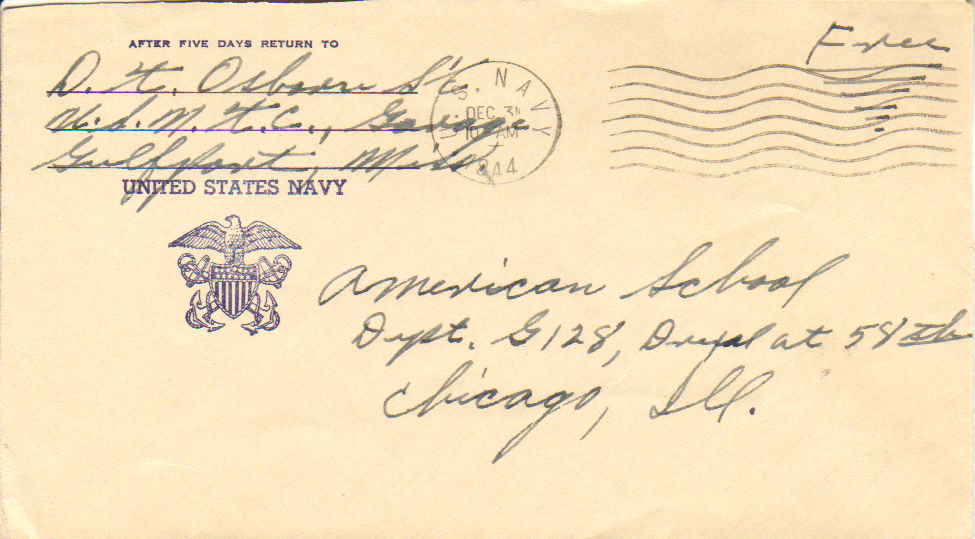 AFTER FIVE DAYS RETURN TO
Free
D. T. Osborn St.
U.S.N.T.C., Garage
Gulfport, Miss.
UNITED STATES NAVY
U.S. NAVY
DEC 31
10 AM
1944
American School
Dept. G128, Drexel at 58th
Chicago, Ill.